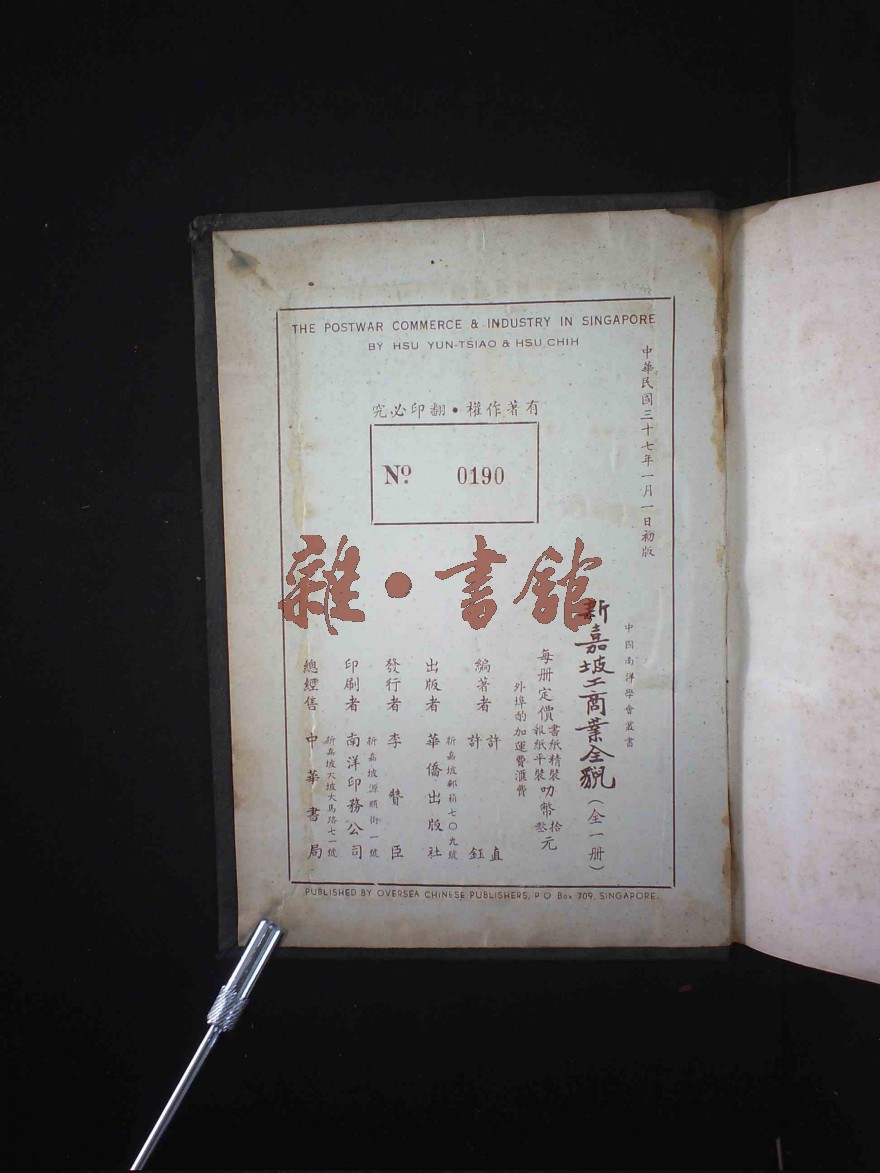 THE POSTWAR COMMERCE & INDUSTRY IN SINGAPORE
BY HSU YUN-TSIAO & HSU CHIH
中華民國三十七年一月一日初版
究必印翻•權作著有
Nº 0190
雜•書館
中国南洋學會叢書
新嘉坡工商業全貌(全一册)
每册定價書紙精裝叻幣拾元
報紙平裝
外埠酌加運費滙費
編著者 許直
許鈺
出版者 華僑出版社
新嘉坡郵箱七〇九號
發行者 李贊臣
新嘉坡源順街一號
印刷者 南洋印務公司
總經售 中華書局
新嘉坡大坡大馬路七一號
PUBLISHED BY OVERSEA CHINESE PUBLISHERS, P O Box 709, SINGAPORE.